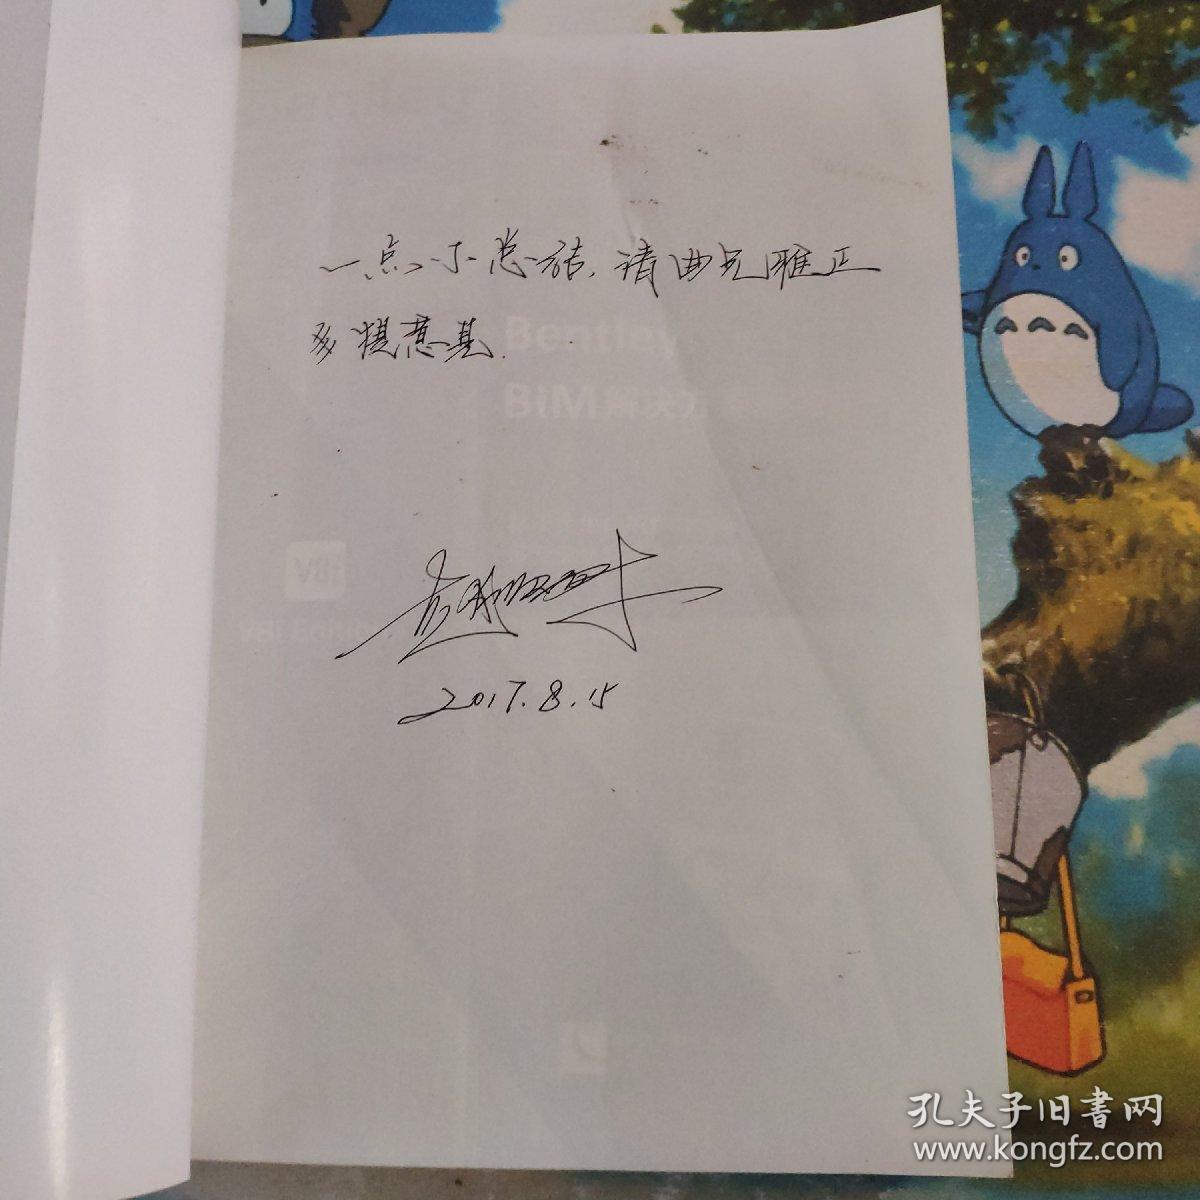 一点小总结，请曲兄雅正
多提意见.
2017.8.15
Bentley
BIM解决方
V8i
孔夫子旧書网
www.kongfz.com